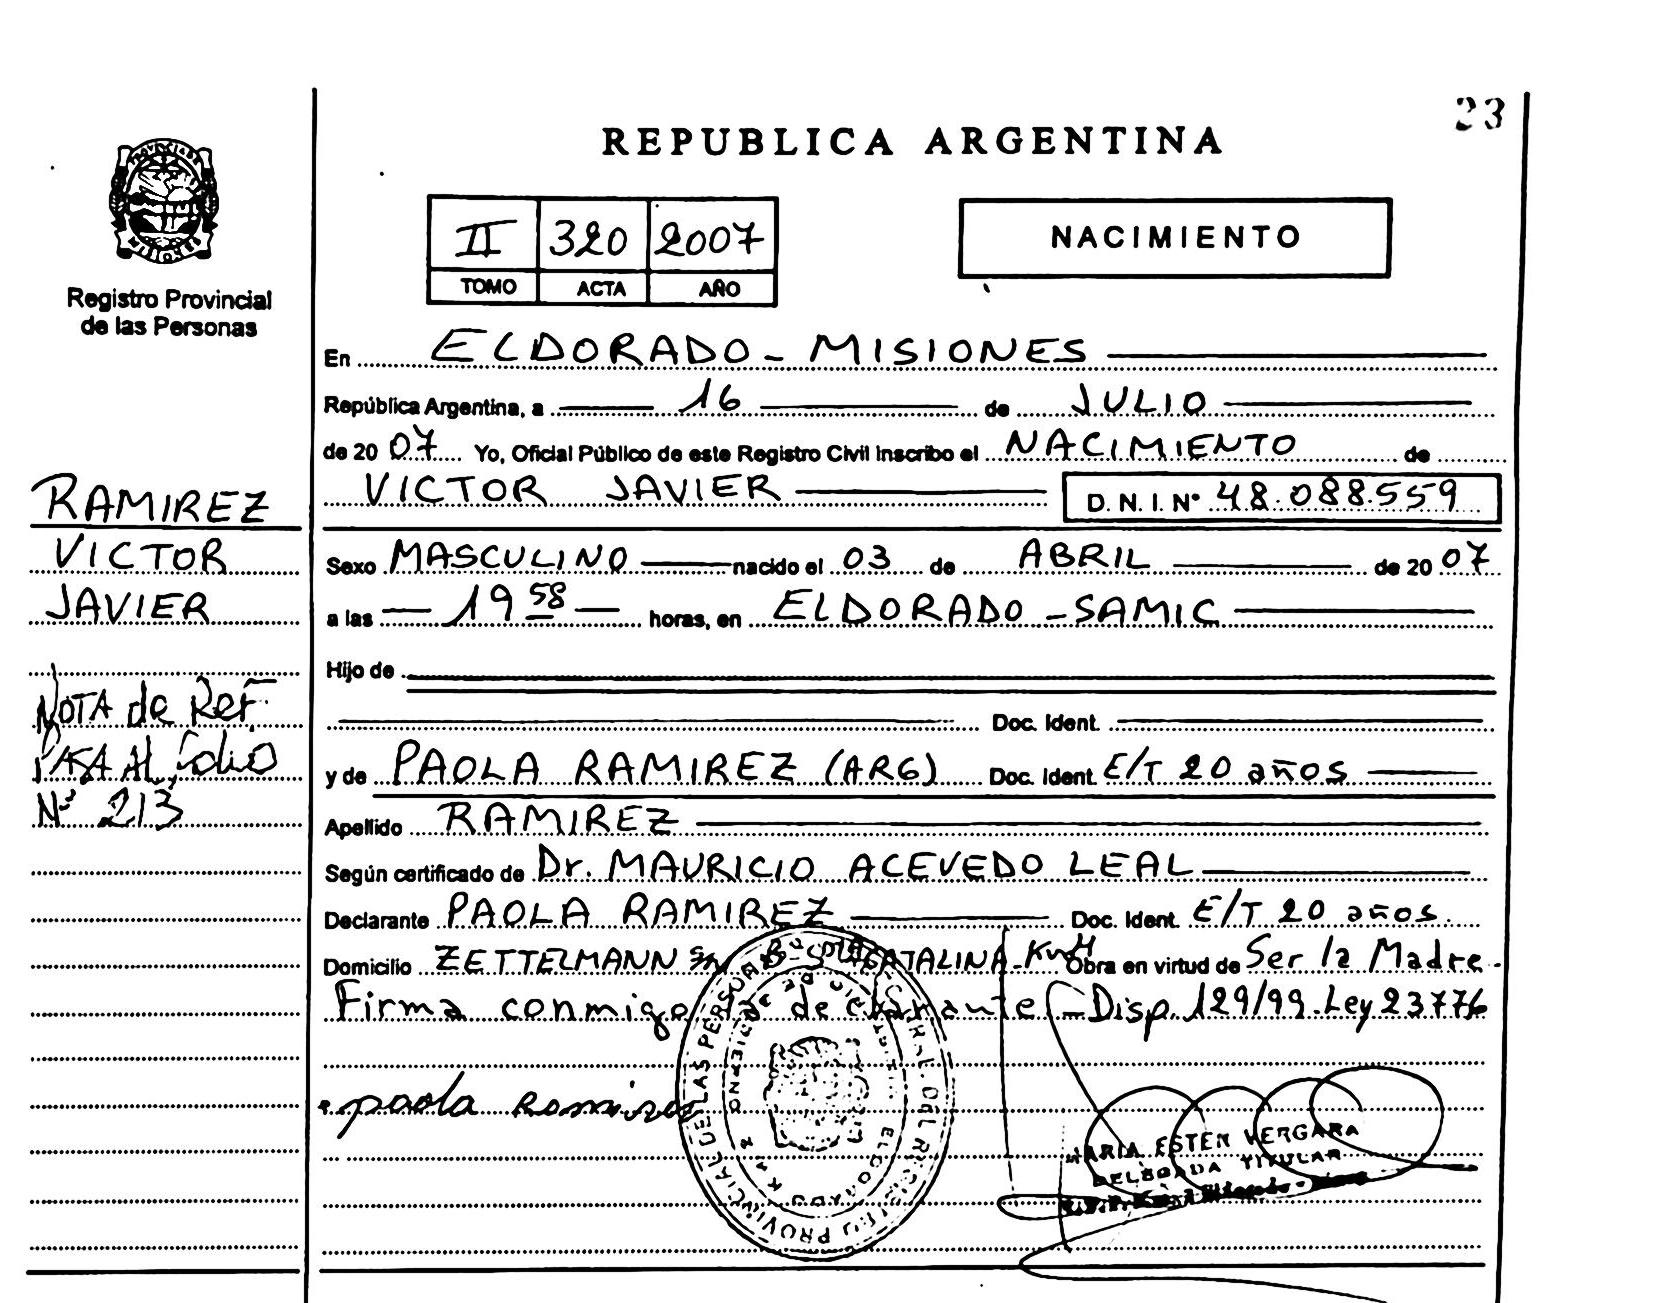 23
REPUBLICA ARGENTINA
PROVINCIA DE
MISIONES
Registro Provincial
de las Personas
II 320 2007
TOMO ACTA AÑO
NACIMIENTO
En ELDORADO - MISIONES
República Argentina, a 16 de JULIO
de 20 07 Yo, Oficial Público de este Registro Civil inscribo el NACIMIENTO de
VICTOR JAVIER D. N. I. N° 48.088.559
RAMIREZ
VICTOR
JAVIER
NOTA de Ref
PASA Al folio
N° 213
Sexo MASCULINO nacido el 03 de ABRIL de 20 07
a las 19 58 horas, en ELDORADO - SAMIC
Hijo de
Doc. Ident.
y de PAOLA RAMIREZ (ARG) Doc. Ident. E/T 20 años
Apellido RAMIREZ
Según certificado de Dr. MAURICIO ACEVEDO LEAL
Declarante PAOLA RAMIREZ Doc. Ident. E/T 20 años.
Domicilio ZETTELMANN S/N CATALINA - Obra en virtud de Ser la Madre.
Firma conmigo la declarante - Disp. 129/99. Ley 23776
paola Ramirez
PROVINCIAL DE LAS PERSONAS
ELDORADO
MARIA ESTER VERGARA
DELEGADA TITULAR